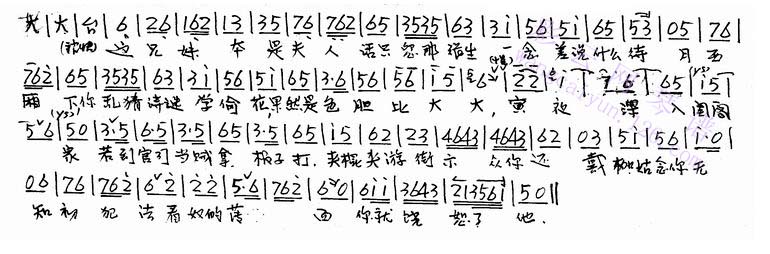 大|大|台|6|26|162|13|35|76|762|65|3535|63|3i|56|5i|65|53|05|76|
(红娘) 这 兄 妹 本 是 夫 人 话只 忽那 生 一念 差说什么待 月西
762|65|3535|63|3i|56|5i|65|3·6|56|56|i5|6|22|i|76|65|i5|
厢 下你乱猜诗谜 学偷 花果然是色 胆 比 天 大, 夤 夜 深 入闺阁
56|50|3·5|6·5|3·5|65|3·5|65|i5|62|23|4643|4643|62|03|5i|56|i·0|
家 若到官司当贼拿 板子打,夹棍夹游街示 众你还 戴 姑念你无
06|76|762|62|22|5·6|762|60|6ii|3643|213561|50‖
知初 犯 法看奴的薄 面 你就 饶 恕了 他.